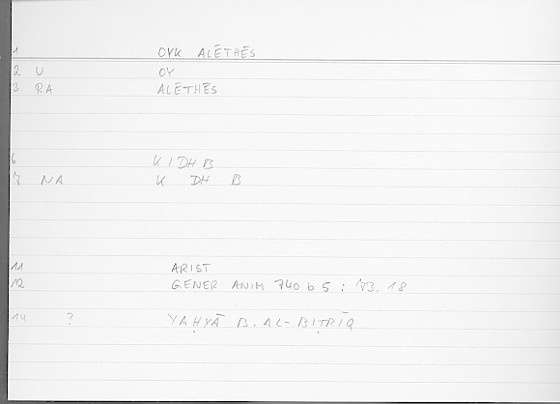 1 OYK ALĒTHĒS
2 U OY
3 RA ALĒTHĒS
6 K I DH B
7 NA K DH B
11 ARIST
12 GENER ANIM 740 b 5 : 73. 18
14 ? YAḤYĀ B. AL-BIṬRĪQ